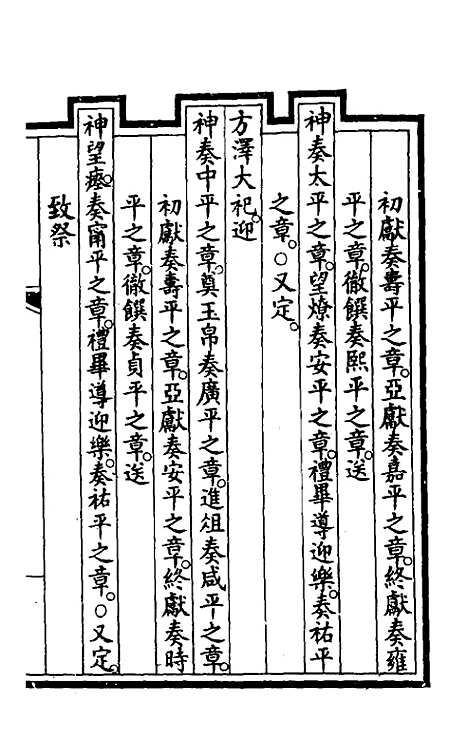 初獻奏壽平之章。亞獻奏嘉平之章。終獻奏雍
平之章。徹饌奏熙平之章。送
神奏太平之章。望燎奏安平之章。禮畢導迎樂。奏祐平
之章。○又定。
方澤大祀。迎
神奏中平之章。奠玉帛奏廣平之章。進俎奏咸平之章。
初獻奏壽平之章。亞獻奏安平之章。終獻奏時
平之章。徹饌奏貞平之章。送
神望瘞。奏甯平之章。禮畢導迎樂。奏祐平之章。○又定。
致祭